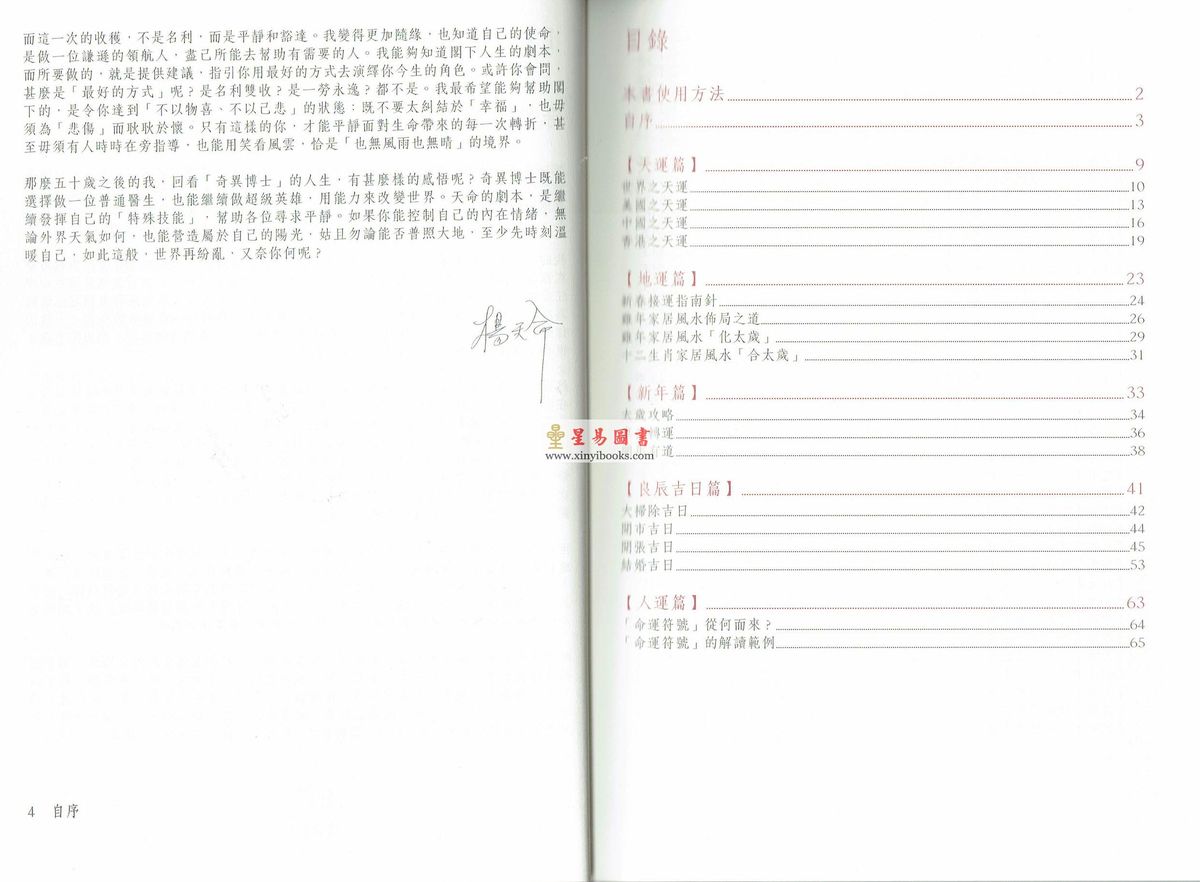 而這一次的收獲，不是名利，而是平靜和豁達。我變得更加隨緣，也知道自己的使命，
是做一位謙遜的領航人，盡己所能去幫助有需要的人。我能夠知道閣下人生的劇本，
而所要做的，就是提供建議，指引你用最好的方式去演繹你今生的角色。或許你會問，
甚麼是「最好的方式」呢？是名利雙收？是一勞永逸？都不是。我最希望能夠幫助閣
下的，是令你達到「不以物喜、不以己悲」的狀態；既不要太糾結於「幸福」，也毋
須為「悲傷」而耿耿於懷。只有這樣的你，才能平靜面對生命帶來的每一次轉折，甚
至毋須有人時時在旁指導，也能用笑看風雲，恰是「也無風雨也無晴」的境界。
那麼五十歲之後的我，回看「奇異博士」的人生，有甚麼樣的感悟呢？奇異博士既能
選擇做一位普通醫生，也能繼續做超級英雄，用能力來改變世界。天命的劇本，是繼
續發揮自己的「特殊技能」，幫助各位尋求平靜。如果你能控制自己的內在情緒，無
論外界天氣如何，也能營造屬於自己的陽光，姑且勿論能否普照大地，至少先時刻溫
暖自己，如此這般，世界再紛亂，又奈你何呢？
楊天命
4 自序
目錄
本書使用方法 2
自序 3
【天運篇】 9
世界之天運 10
美國之天運 13
中國之天運 16
香港之天運 19
【地運篇】 23
新春接運指南針 24
雞年家居風水佈局之道 26
雞年家居風水「化太歲」 29
十二生肖家居風水「合太歲」 31
【新年篇】 33
太歲攻略 34
運 36
道 38
【良辰吉日篇】 41
大掃除吉日 42
開市吉日 44
開張吉日 45
結婚吉日 53
【人運篇】 63
「命運符號」從何而來？ 64
「命運符號」的解讀範例 65
星易圖書
www.xinyibooks.com